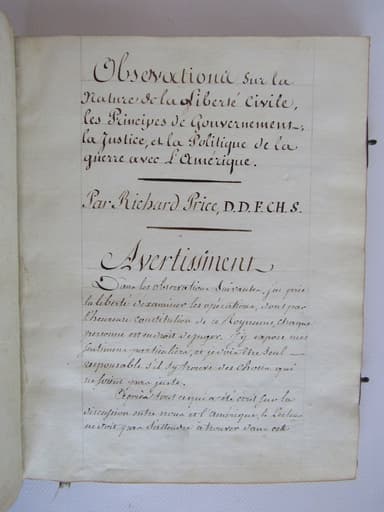 Observations sur la
Nature de la Liberté Civile,
les Principes de Gouvernement,
la Justice, et la Politique de la
guerre avec l'Amérique.
Par Richard Price, D.D.F.CH.S.
Avertissment
Dans les observations suivantes, j'ai pris
la liberté d'examiner les opérations, dont par
l'heureuse constitution de ce Royaume, chaque
personne est en droit de juger. J'y expose mes
sentimens particuliers, et je dois être seul
responsable s'il s'y trouve des choses qui
ne soient pas justes.
Après tout ce qui a été écrit sur la
discussion entre nous et l'amérique, le Lecteur
ne doit pas s'attendre à trouver dans cet